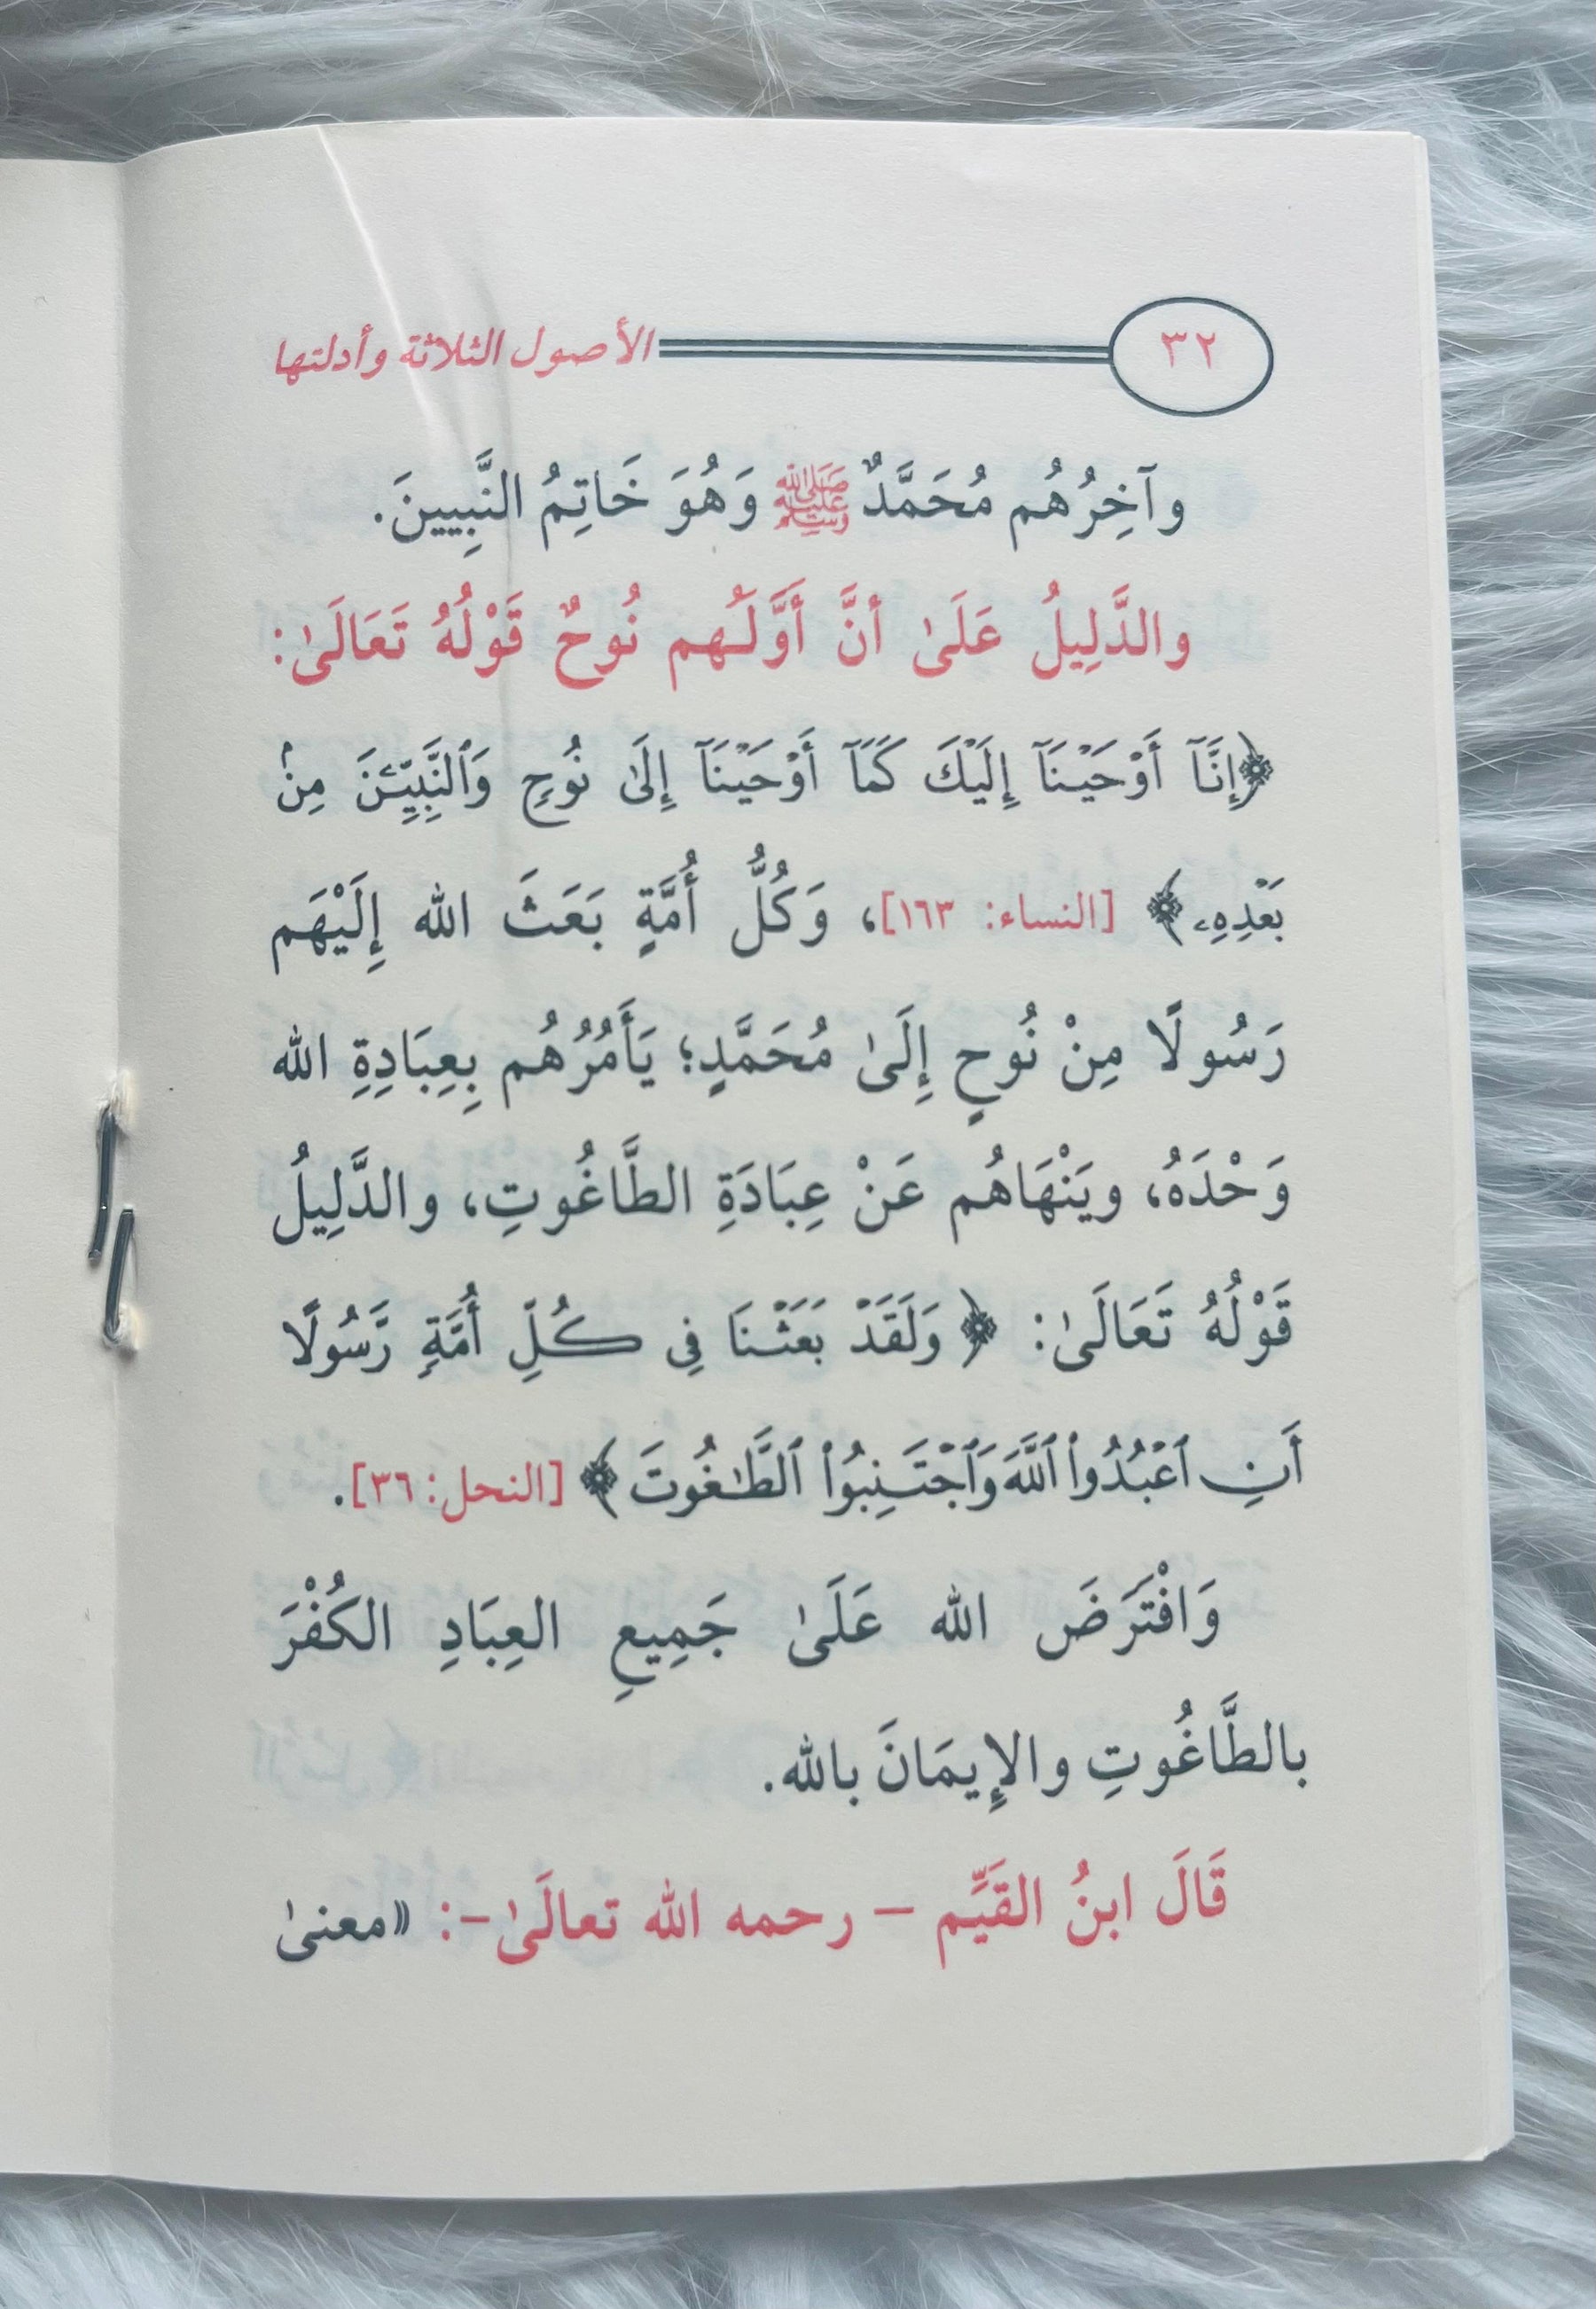 ٣٢ الأصول الثلاثة وأدلتها
وآخِرُهُم مُحَمَّدٌ ﷺ وَهُوَ خَاتِمُ النَّبِيينَ.
والدَّلِيلُ عَلَىٰ أنَّ أَوَّلَهُم نُوحٌ قَوْلُهُ تَعَالَىٰ:
﴿إِنَّآ أَوۡحَيۡنَآ إِلَيۡكَ كَمَآ أَوۡحَيۡنَآ إِلَىٰ نُوحٖ وَٱلنَّبِيِّـۧنَ مِنۢ
بَعۡدِهِۦ﴾ [النساء: ١٦٣]، وَكُلُّ أُمَّةٍ بَعَثَ الله إِلَيْهَم
رَسُولًا مِنْ نُوحٍ إِلَىٰ مُحَمَّدٍ؛ يَأَمُرُهُم بِعِبَادِةِ الله
وَحْدَهُ، ويَنْهَاهُم عَنْ عِبَادَةِ الطَّاغُوتِ، والدَّلِيلُ
قَوْلُهُ تَعَالَىٰ: ﴿وَلَقَدۡ بَعَثۡنَا فِي كُلِّ أُمَّةٖ رَّسُولًا
أَنِ ٱعۡبُدُواْ ٱللَّهَ وَٱجۡتَنِبُواْ ٱلطَّٰغُوتَ﴾ [النحل: ٣٦].
وَافْتَرَضَ الله عَلَىٰ جَمِيعِ العِبَادِ الكُفْرَ
بالطَّاغُوتِ والإِيمَانَ بالله.
قَالَ ابنُ القَيِّم – رحمه الله تعالَىٰ-: «معنىٰ